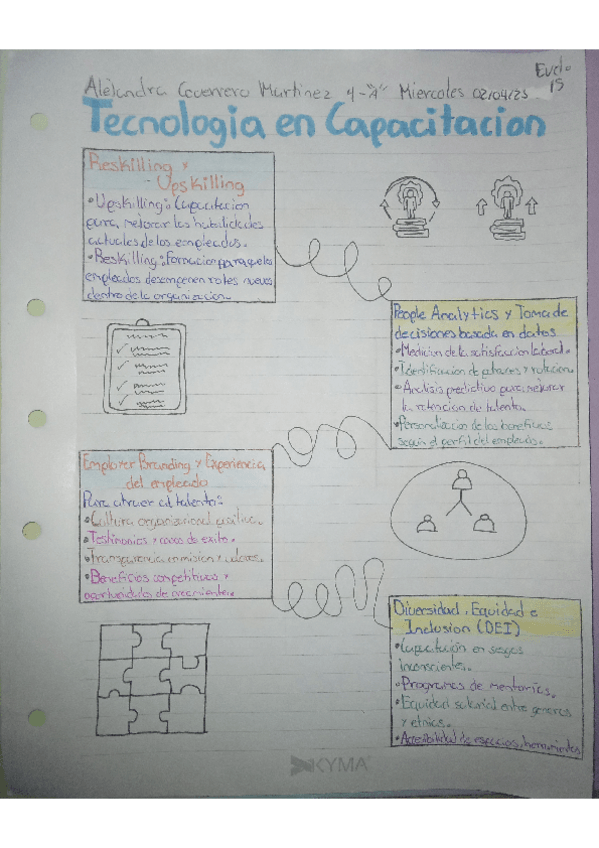 Evdo
15
Alejandra Guerrero Martinez 4-"A" Miercoles 02/04/25
Tecnologia en Capacitacion
Reskilling y
Upskilling
• Upskilling: Capacitacion
para mejorar las habilidades
actuales de los empleados.
• Reskilling: Formacion para que los
empleados desempeñen roles nuevos
dentro de la organizacion.
People Analytics y Toma de
decisiones basada en datos
• Medicion de la satisfaccion laboral.
• Identificacion de patrones y rotacion.
• Analisis predictivo para mejorar
la retencion de talento.
• Personalizacion de los beneficios
segun el perfil del empleado.
Employer Branding y Experiencia
del empleado
Para atraer al talento:
• Cultura organizacional positiva.
• Testimonios y casos de exito.
• Transparencia en mision y valores.
• Beneficios competitivos y
oportunidades de crecimiento.
Diversidad, Equidad e
Inclusion (DEI)
• Capacitación en sesgos
inconscientes.
• Programas de mentorias.
• Equidad salarial entre generos
y etnias.
• Accesibilidad de espacios, herramientas
KYMA